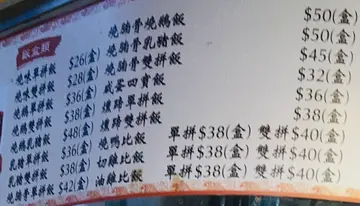 飯盒類
燒味單拼飯 $26(盒)
燒味雙拼飯 $28(盒)
燒鵝單拼飯 $36(盒)
燒鵝雙拼飯 $38(盒)
燒鵝乳豬飯 $48(盒)
乳豬單拼飯 $36(盒)
乳豬雙拼飯 $38(盒)
燒腩骨單拼飯 $42(盒)
燒腩骨燒鵝飯 $50(盒)
燒腩骨乳豬飯 $50(盒)
燒腩骨雙拼飯 $45(盒)
咸蛋四寶飯 $32(盒)
燻蹄單拼飯 $36(盒)
燻蹄雙拼飯 $38(盒)
燒鴨比飯 單拼$38(盒) 雙拼$40(盒)
切雞比飯 單拼$38(盒) 雙拼$40(盒)
油雞比飯 單拼$38(盒) 雙拼$40(盒)